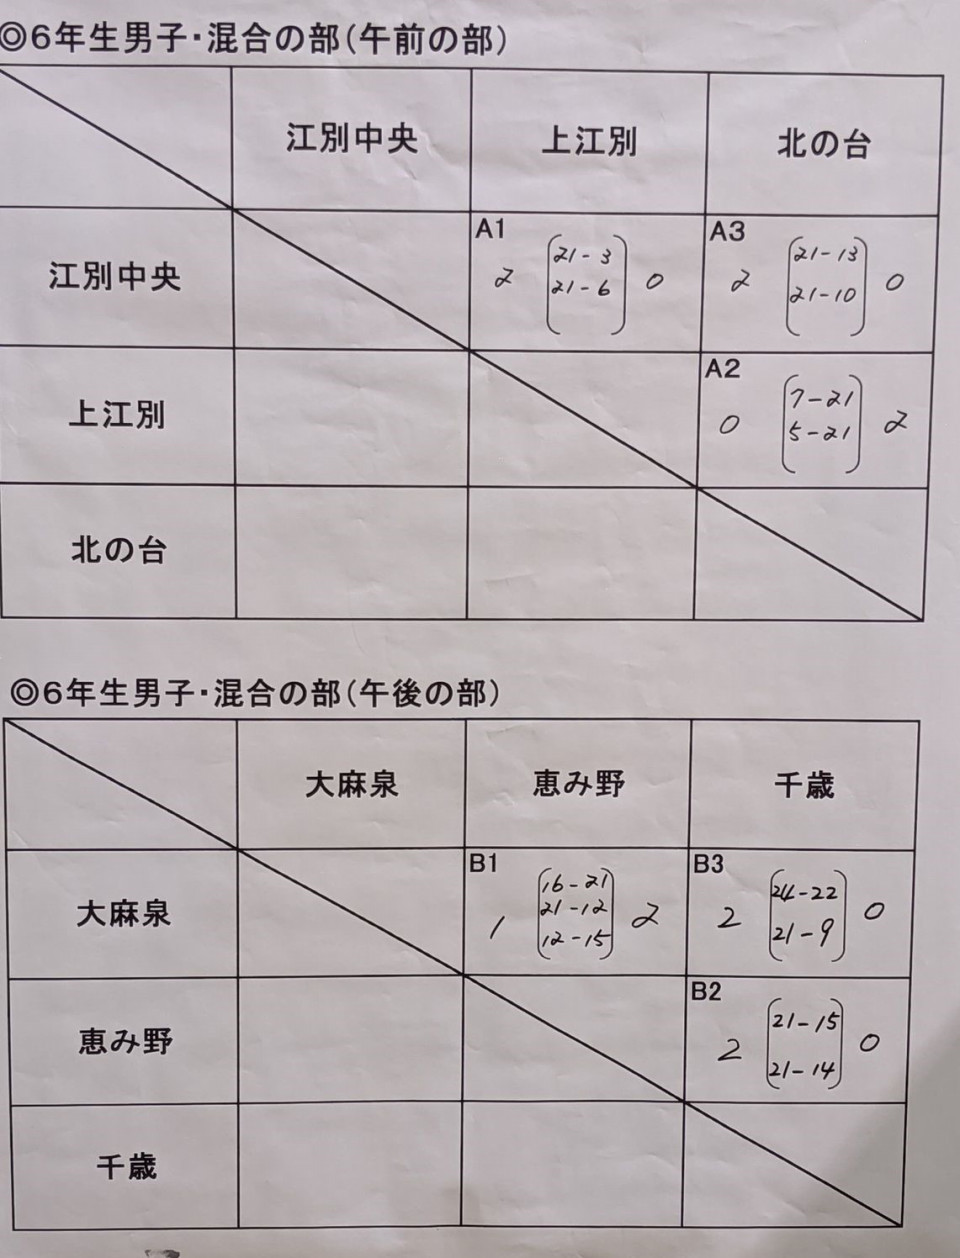 ◎6年生男子・混合の部(午前の部)
江別中央 上江別 北の台
江別中央
A1
2 21-3 0
21-6
A3
2 21-13 0
21-10
上江別
A2
0 7-21 2
5-21
北の台
◎6年生男子・混合の部(午後の部)
大麻泉 恵み野 千歳
大麻泉
B1
16-21
1 21-12 2
12-15
B3
2 24-22 0
21-9
恵み野
B2
2 21-15 0
21-14
千歳